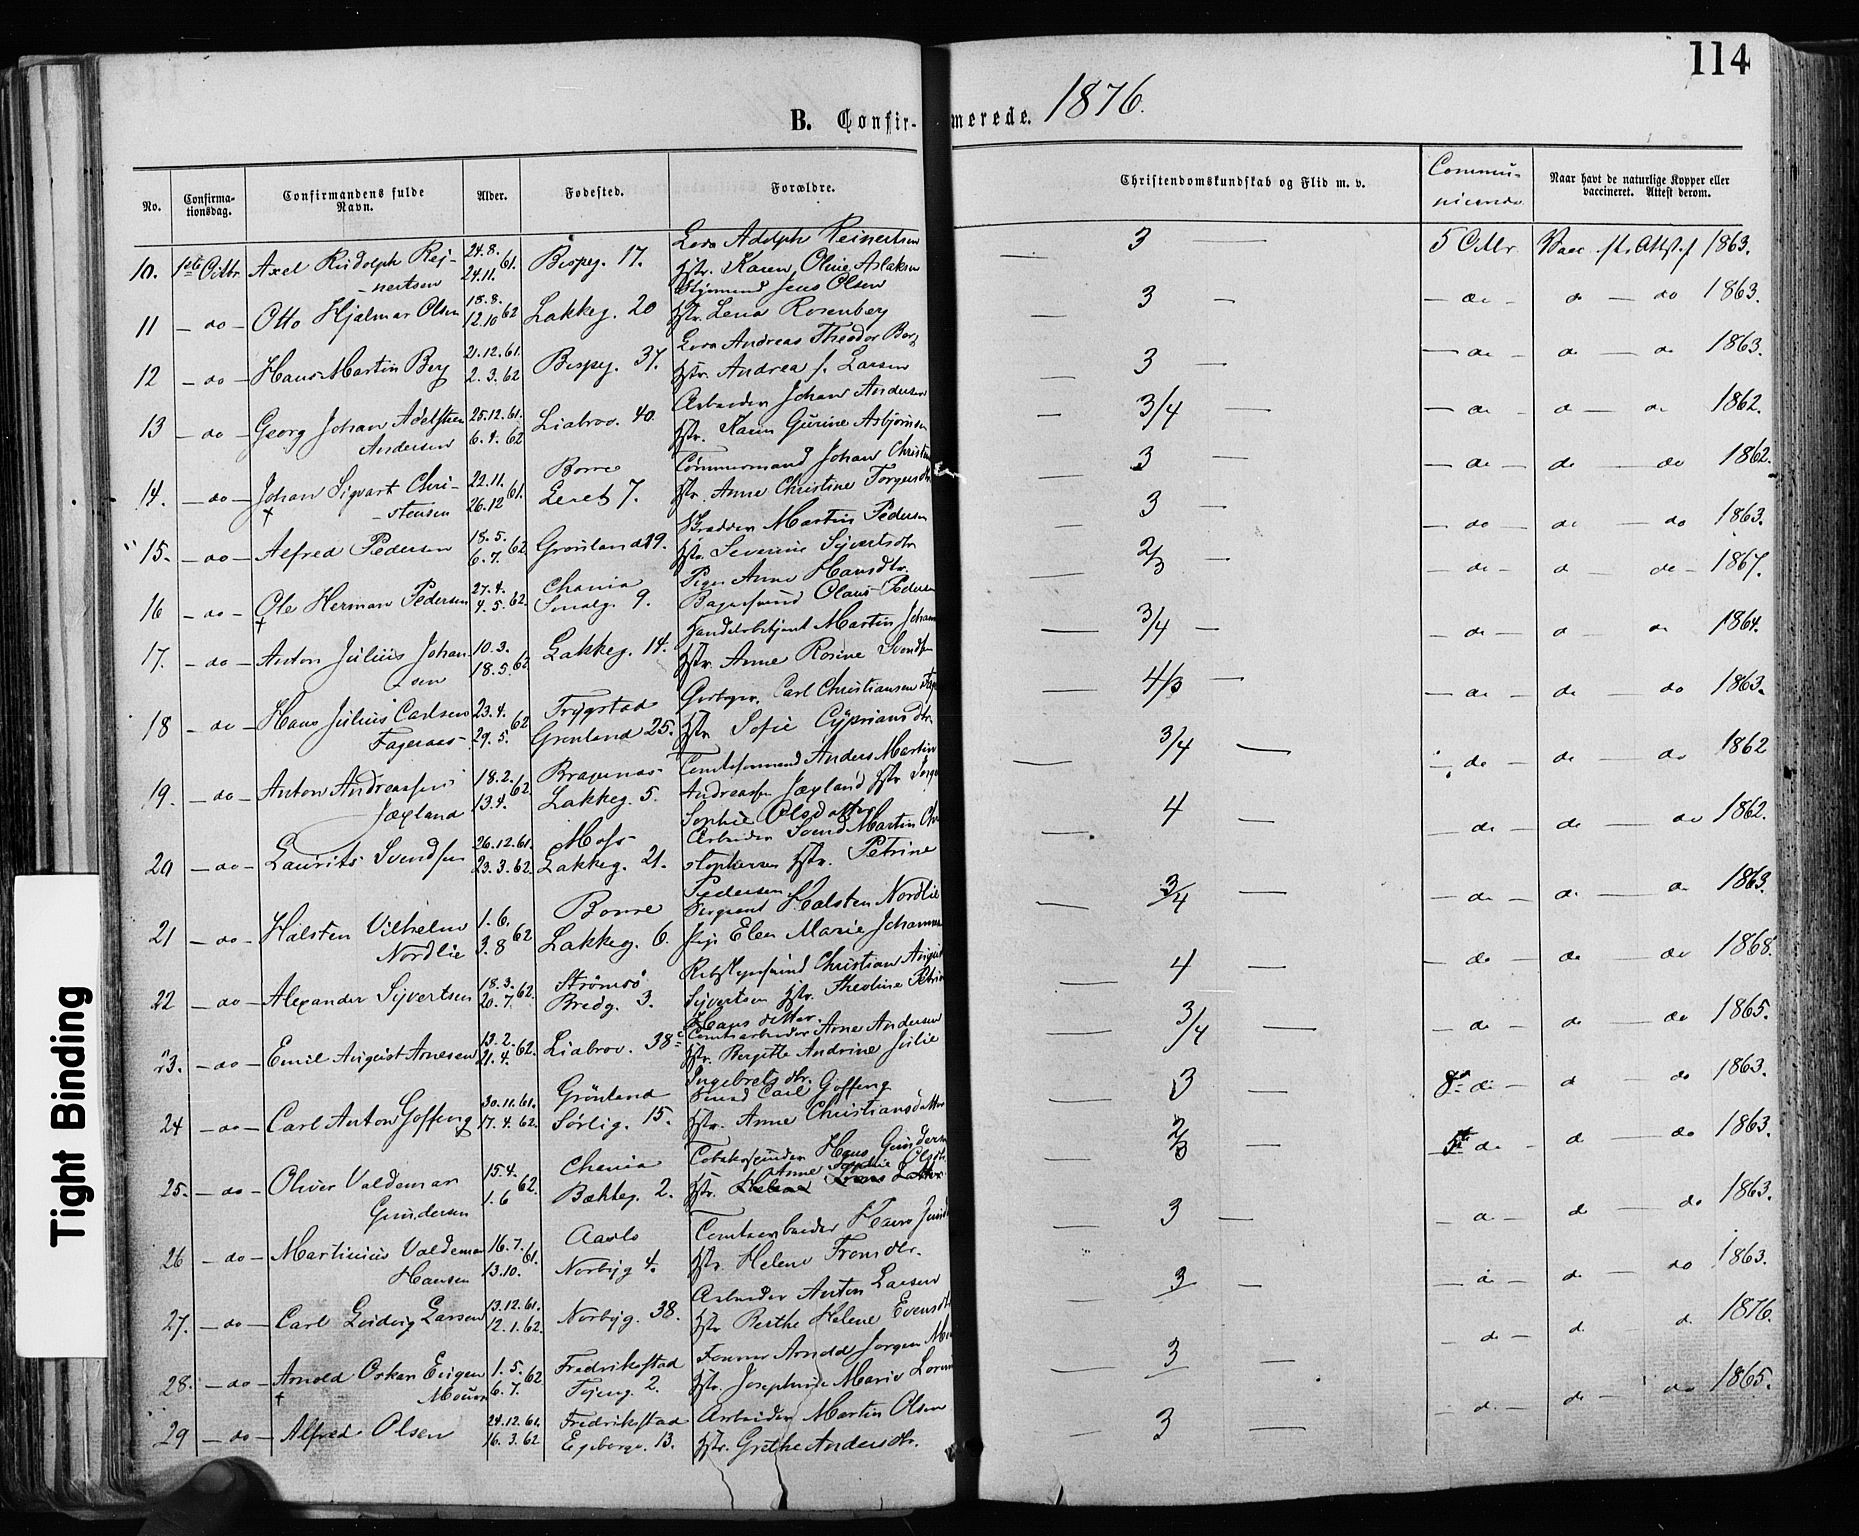 114
B. Confir- merede. 1876.
No. Confirma- tionsdag. Confirmandens fulde Navn. Alder. Fødested. Forældre. Christendomskundskab og Flid m. v. Commu- nicerede Naar havt de naturlige Kopper eller vaccineret. Attest derom.
10. 1ste Octbr. Axel Rudolph Rej- 24.8. 61. Bispeg. 17. Adolph Reinertsen 3 — 5 Octbr 1863.
nertsen 24.11. Hstr. Karen Oline Aslaksen
11 — do — Otto Hjalmar Olsen 18.8. 62 Lakkeg. 20 Styrmand Jens Olsen 3 — do — do — do 1863.
12.10 Hstr. Lena Rosenberg
12 — do — Hans Martin Berg 21.12.61. Bispeg. 37. Andreas Theodor Berg 3 — do — do — do 1863.
2.3.62 Hstr. Andrea f. Larsen
13 — do — Georg Johan Adelsten 25.12.61. Liabrov. 40. Arbeider Johan Andersen 3/4 — do — do — do 1862.
Andersen 6.4.62 Hstr. Karen Gurine Asbjørnsen
14. — do — Johan Sigvart Chri- 22.11. 61. Borre Tømmermand Johan Christen 3 — do — do — do 1862.
+ stensen 26.12 Leret 7. Hstr. Anne Christine Torgersdtr
15. — do — Alfred Pedersen 18.5. 62 Grønland 29. Martin Pedersen 3 — do — do — do 1863.
6.7. Hstr. Severine Syvertsdtr
16 — do — Ole Herman Pedersen 27.4. 62. Chania Pige Anne Hansdtr. 2/3 — do — do — do — 1867.
+ 4.5. Smalg. 9. Bagersvend Olaus Pedersen
17. — do — Anton Julius Johan 10.3. 62 Lakkeg. 14. Handelsbetjent Martin Johann 3/4 — do — do — do 1864.
sen 18.5. Hstr. Anne Rosine Svendsen
18 — do — Hans Julius Carlsen 23.4. 62 Trygstad Carl Christiansen 4/3 — do — do — do 1863.
Fageraas 29.5. Grønland 25. Hstr. Sofie Cypriansdtr.
19. — do — Anton Andreassen 18.2. 62 Bragenæs Anders Martin 3/4 — do — do — do 1862
Jæxland 13.4. Lakkeg. 5. Andreassen Jæxland Hstr.
Sophie Olsdatter
20 — do — Laurits Svendsen 26.12.61. Moss Arbeider Svend Martin Chri 4 — do — do — do 1862.
23.3.62. Lakkeg. 21. stophersen Hstr. Petrine
Pedersen
21 — do — Halsten Vilhelm 1.6. 62 Borre Sergeant Halsten Nordlie 3/4 — do — do — do 1863.
Nordlie 3.8 Lakkeg. 6. Pige Elen Marie Johannes
22 — do — Alexander Syvertsen 18.3. 62. Strømsø Christian August 4 — do — do — do 1868.
20.7. Bredg. 3. Syvertsen Hstr. Theoline Petrine
Hansdatter
23. — do — Emil August Arnesen 13.2. 62. Liabrov. 38 Arne Andersen 3/4 — do — do — do 1865.
21.4. Hstr. Bergitte Andrine Julie
Ingebretsdtr.
24 — do — Carl Anton Goffeng 30.11.61. Grønland Carl Goffeng 3 — 8 do — do — do 1863.
17.4.62. Sørlig. 15. Hstr. Anne Christiansdatter
25. — do — Oliver Valdemar 15.4. 62. Chania Hans Gundersen 2/3 — 5 do — do — do 1863.
Gundersen 1.6 Bækkeg. 2. Hstr. Anne Sophie Olsdtr
26 — do — Martinius Valdemar 16.7. 61. Aaslo Hans 3 — do — do — do 1863.
Hansen 13.10. Norbyg 4. Hstr. Helene Fronsdtr.
27. — do — Carl Ludvig Larsen 13.12.61. Norbyg. 38. Arbeider Anton Larsen 3 — do — do — do 1863.
12.1.62. Hstr Berthe Helene Evensdtr
28. — do — Arnold Oskar Eugen 1.5. 62 Fredrikstad Arnold Jørgen 3 — do — do do 1876.
+ 6.7. Tøieng. 2. Hstr. Josephine Marie
29 — do — Alfred Olsen 24.12.61. Fredrikstad Arbeider Martin Olsen 3 — do — do — do 1865.
16.3.62 Egebergv. 13. Hstr. Grethe Andersdtr.
Tight Binding